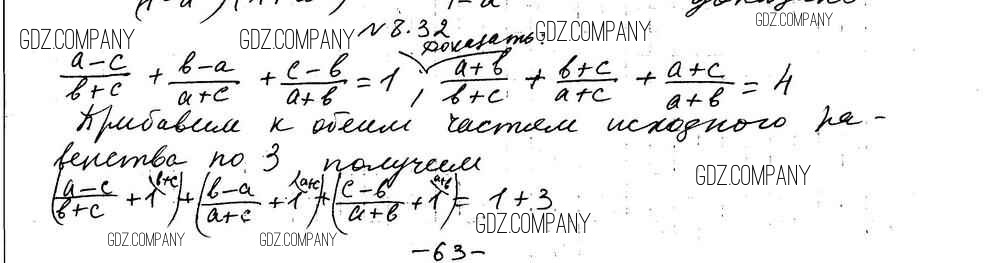 N 8.32
GDZ.COMPANY GDZ.COMPANY Доказать: GDZ.COMPANY GDZ.COMPANY
(a-c)/(b+c) + (b-a)/(a+c) + (c-b)/(a+b) = 1, (a+b)/(b+c) + (b+c)/(a+c) + (a+c)/(a+b) = 4
Прибавим к обеим частям исходного ра-
венства по 3 получаем
GDZ.COMPANY
((a-c)/(b+c) + 1^(b+c)) + ((b-a)/(a+c) + 1^(a+c)) + ((c-b)/(a+b) + 1^(a+b)) = 1+3
GDZ.COMPANY GDZ.COMPANY GDZ.COMPANY
-63-